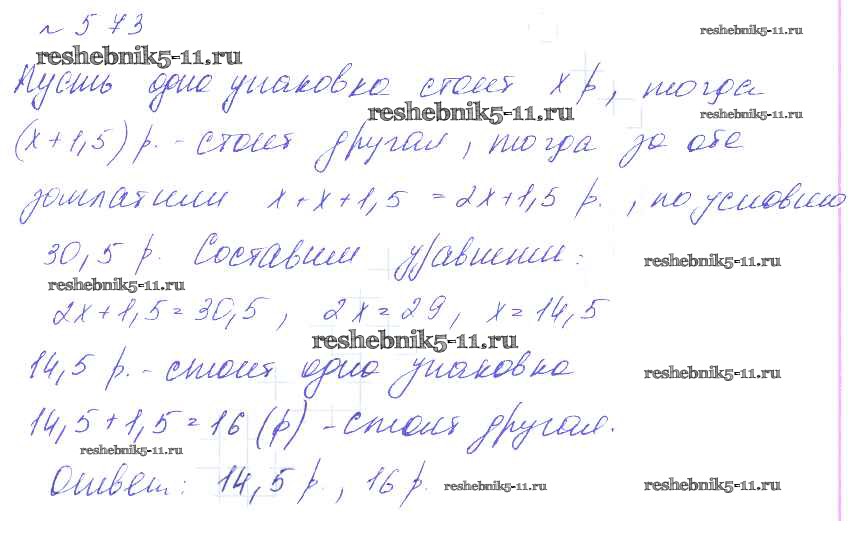 № 573
reshebnik5-11.ru
reshebnik5-11.ru
Пусть одна упаковка стоит x р, тогда
reshebnik5-11.ru
reshebnik5-11.ru
(x+1,5) р. - стоит другая, тогда за обе
заплатили x+x+1,5 = 2x+1,5 р., по условию
30,5 р. Составим уравнение:
reshebnik5-11.ru
reshebnik5-11.ru
2x+1,5=30,5, 2x=29, x=14,5
reshebnik5-11.ru
14,5 р. - стоит одна упаковка
reshebnik5-11.ru
14,5+1,5=16 (р) - стоит другая.
reshebnik5-11.ru
Ответ: 14,5 р., 16 р.
reshebnik5-11.ru
reshebnik5-11.ru